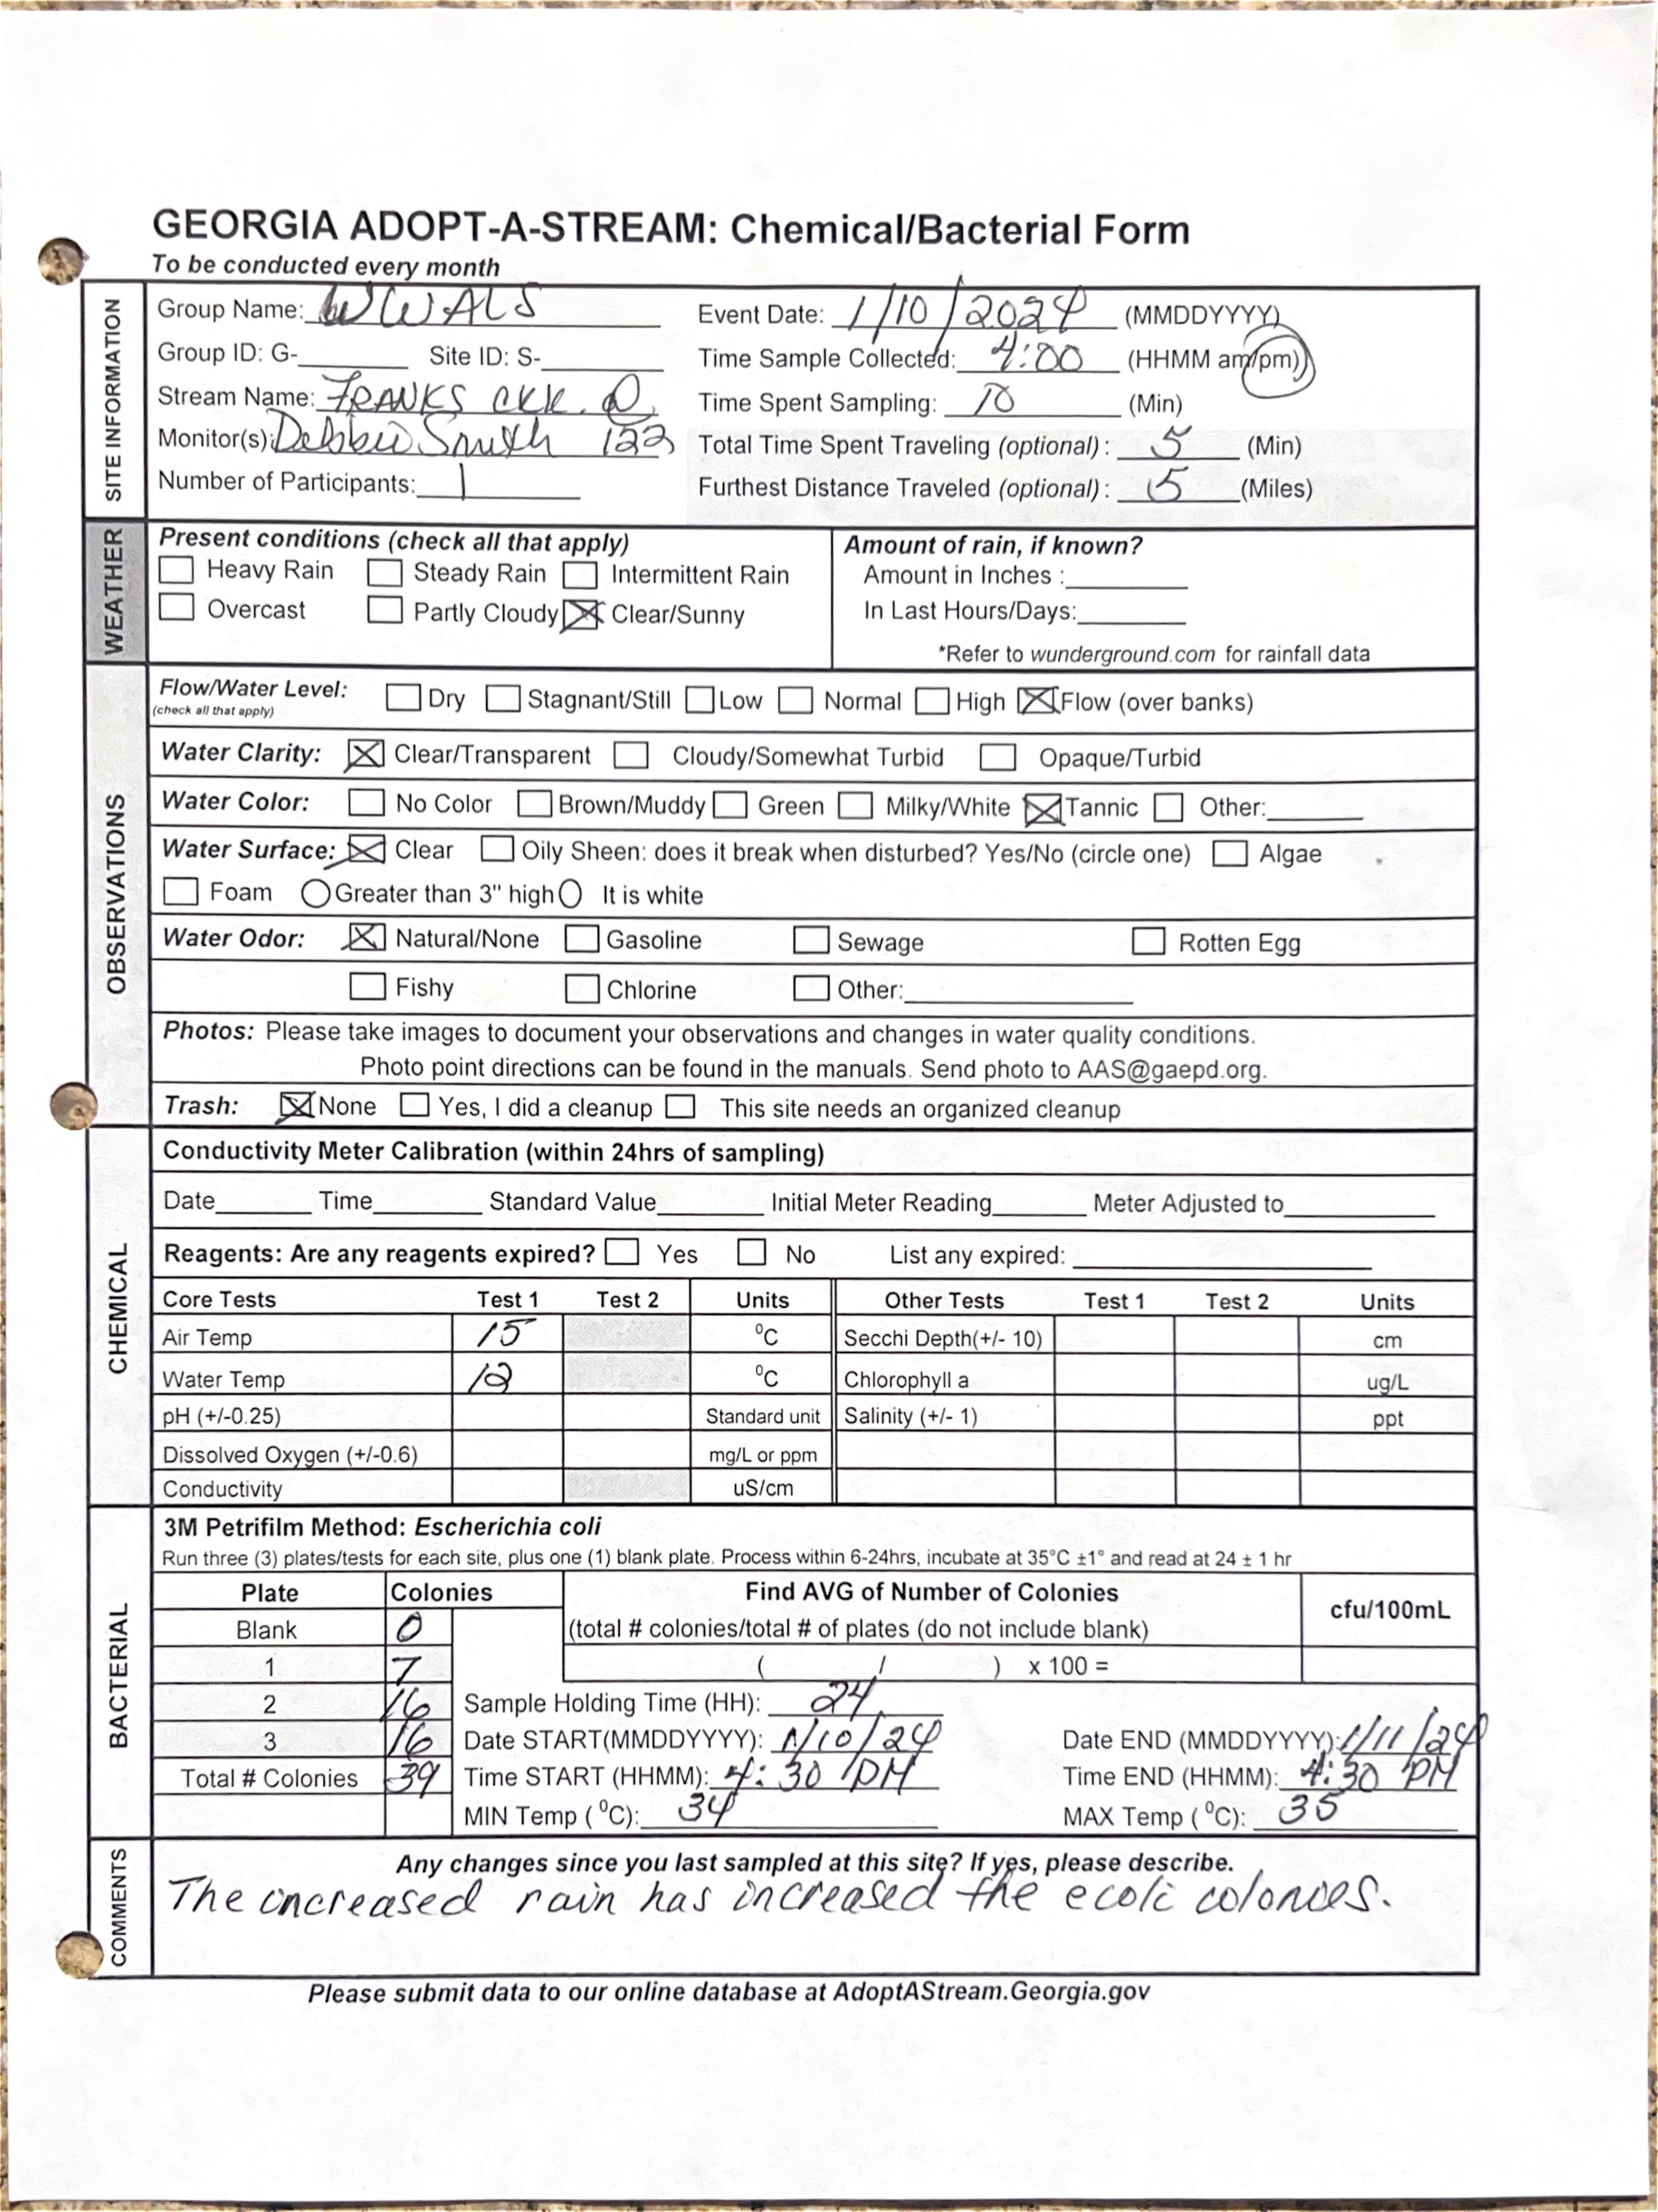 GEORGIA ADOPT-A-STREAM: Chemical/Bacterial Form
To be conducted every month
SITE INFORMATION
Group Name: WWALS
Event Date: 1/10/2024 (MMDDYYYY)
Group ID: G-______ Site ID: S-______
Time Sample Collected: 4:00 (HHMM am/pm)
Stream Name: FRANKS CKK. @
Time Spent Sampling: 10 (Min)
Monitor(s): Debbie Smith 122
Total Time Spent Traveling (optional) : 5 (Min)
Number of Participants: 1
Furthest Distance Traveled (optional) : 5 (Miles)
WEATHER
Present conditions (check all that apply)
Heavy Rain Steady Rain Intermittent Rain
Overcast Partly Cloudy Clear/Sunny
Amount of rain, if known?
Amount in Inches :______
In Last Hours/Days:______
*Refer to wunderground.com for rainfall data
OBSERVATIONS
Flow/Water Level: Dry Stagnant/Still Low Normal High Flow (over banks)
(check all that apply)
Water Clarity: Clear/Transparent Cloudy/Somewhat Turbid Opaque/Turbid
Water Color: No Color Brown/Muddy Green Milky/White Tannic Other:______
Water Surface: Clear Oily Sheen: does it break when disturbed? Yes/No (circle one) Algae
Foam Greater than 3" high It is white
Water Odor: Natural/None Gasoline Sewage Rotten Egg
Fishy Chlorine Other:______
Photos: Please take images to document your observations and changes in water quality conditions.
Photo point directions can be found in the manuals. Send photo to AAS@gaepd.org.
Trash: None Yes, I did a cleanup This site needs an organized cleanup
CHEMICAL
Conductivity Meter Calibration (within 24hrs of sampling)
Date______ Time______ Standard Value______ Initial Meter Reading______ Meter Adjusted to______
Reagents: Are any reagents expired? Yes No List any expired: ______
Core Tests Test 1 Test 2 Units Other Tests Test 1 Test 2 Units
Air Temp 15 °C Secchi Depth(+/- 10) cm
Water Temp 12 °C Chlorophyll a ug/L
pH (+/-0.25) Standard unit Salinity (+/- 1) ppt
Dissolved Oxygen (+/-0.6) mg/L or ppm
Conductivity uS/cm
BACTERIAL
3M Petrifilm Method: Escherichia coli
Run three (3) plates/tests for each site, plus one (1) blank plate. Process within 6-24hrs, incubate at 35°C ±1° and read at 24 ± 1 hr
Plate Colonies Find AVG of Number of Colonies cfu/100mL
Blank 0 (total # colonies/total # of plates (do not include blank)
1 7 ( / ) x 100 =
2 16 Sample Holding Time (HH): 24
3 16 Date START(MMDDYYYY): 1/10/24 Date END (MMDDYYYY): 1/11/24
Total # Colonies 39 Time START (HHMM): 4:30 PM Time END (HHMM): 4:30 PM
MIN Temp (°C): 34 MAX Temp (°C): 35
COMMENTS
Any changes since you last sampled at this site? If yes, please describe.
The increased rain has increased the ecoli colonies.
Please submit data to our online database at AdoptAStream.Georgia.gov